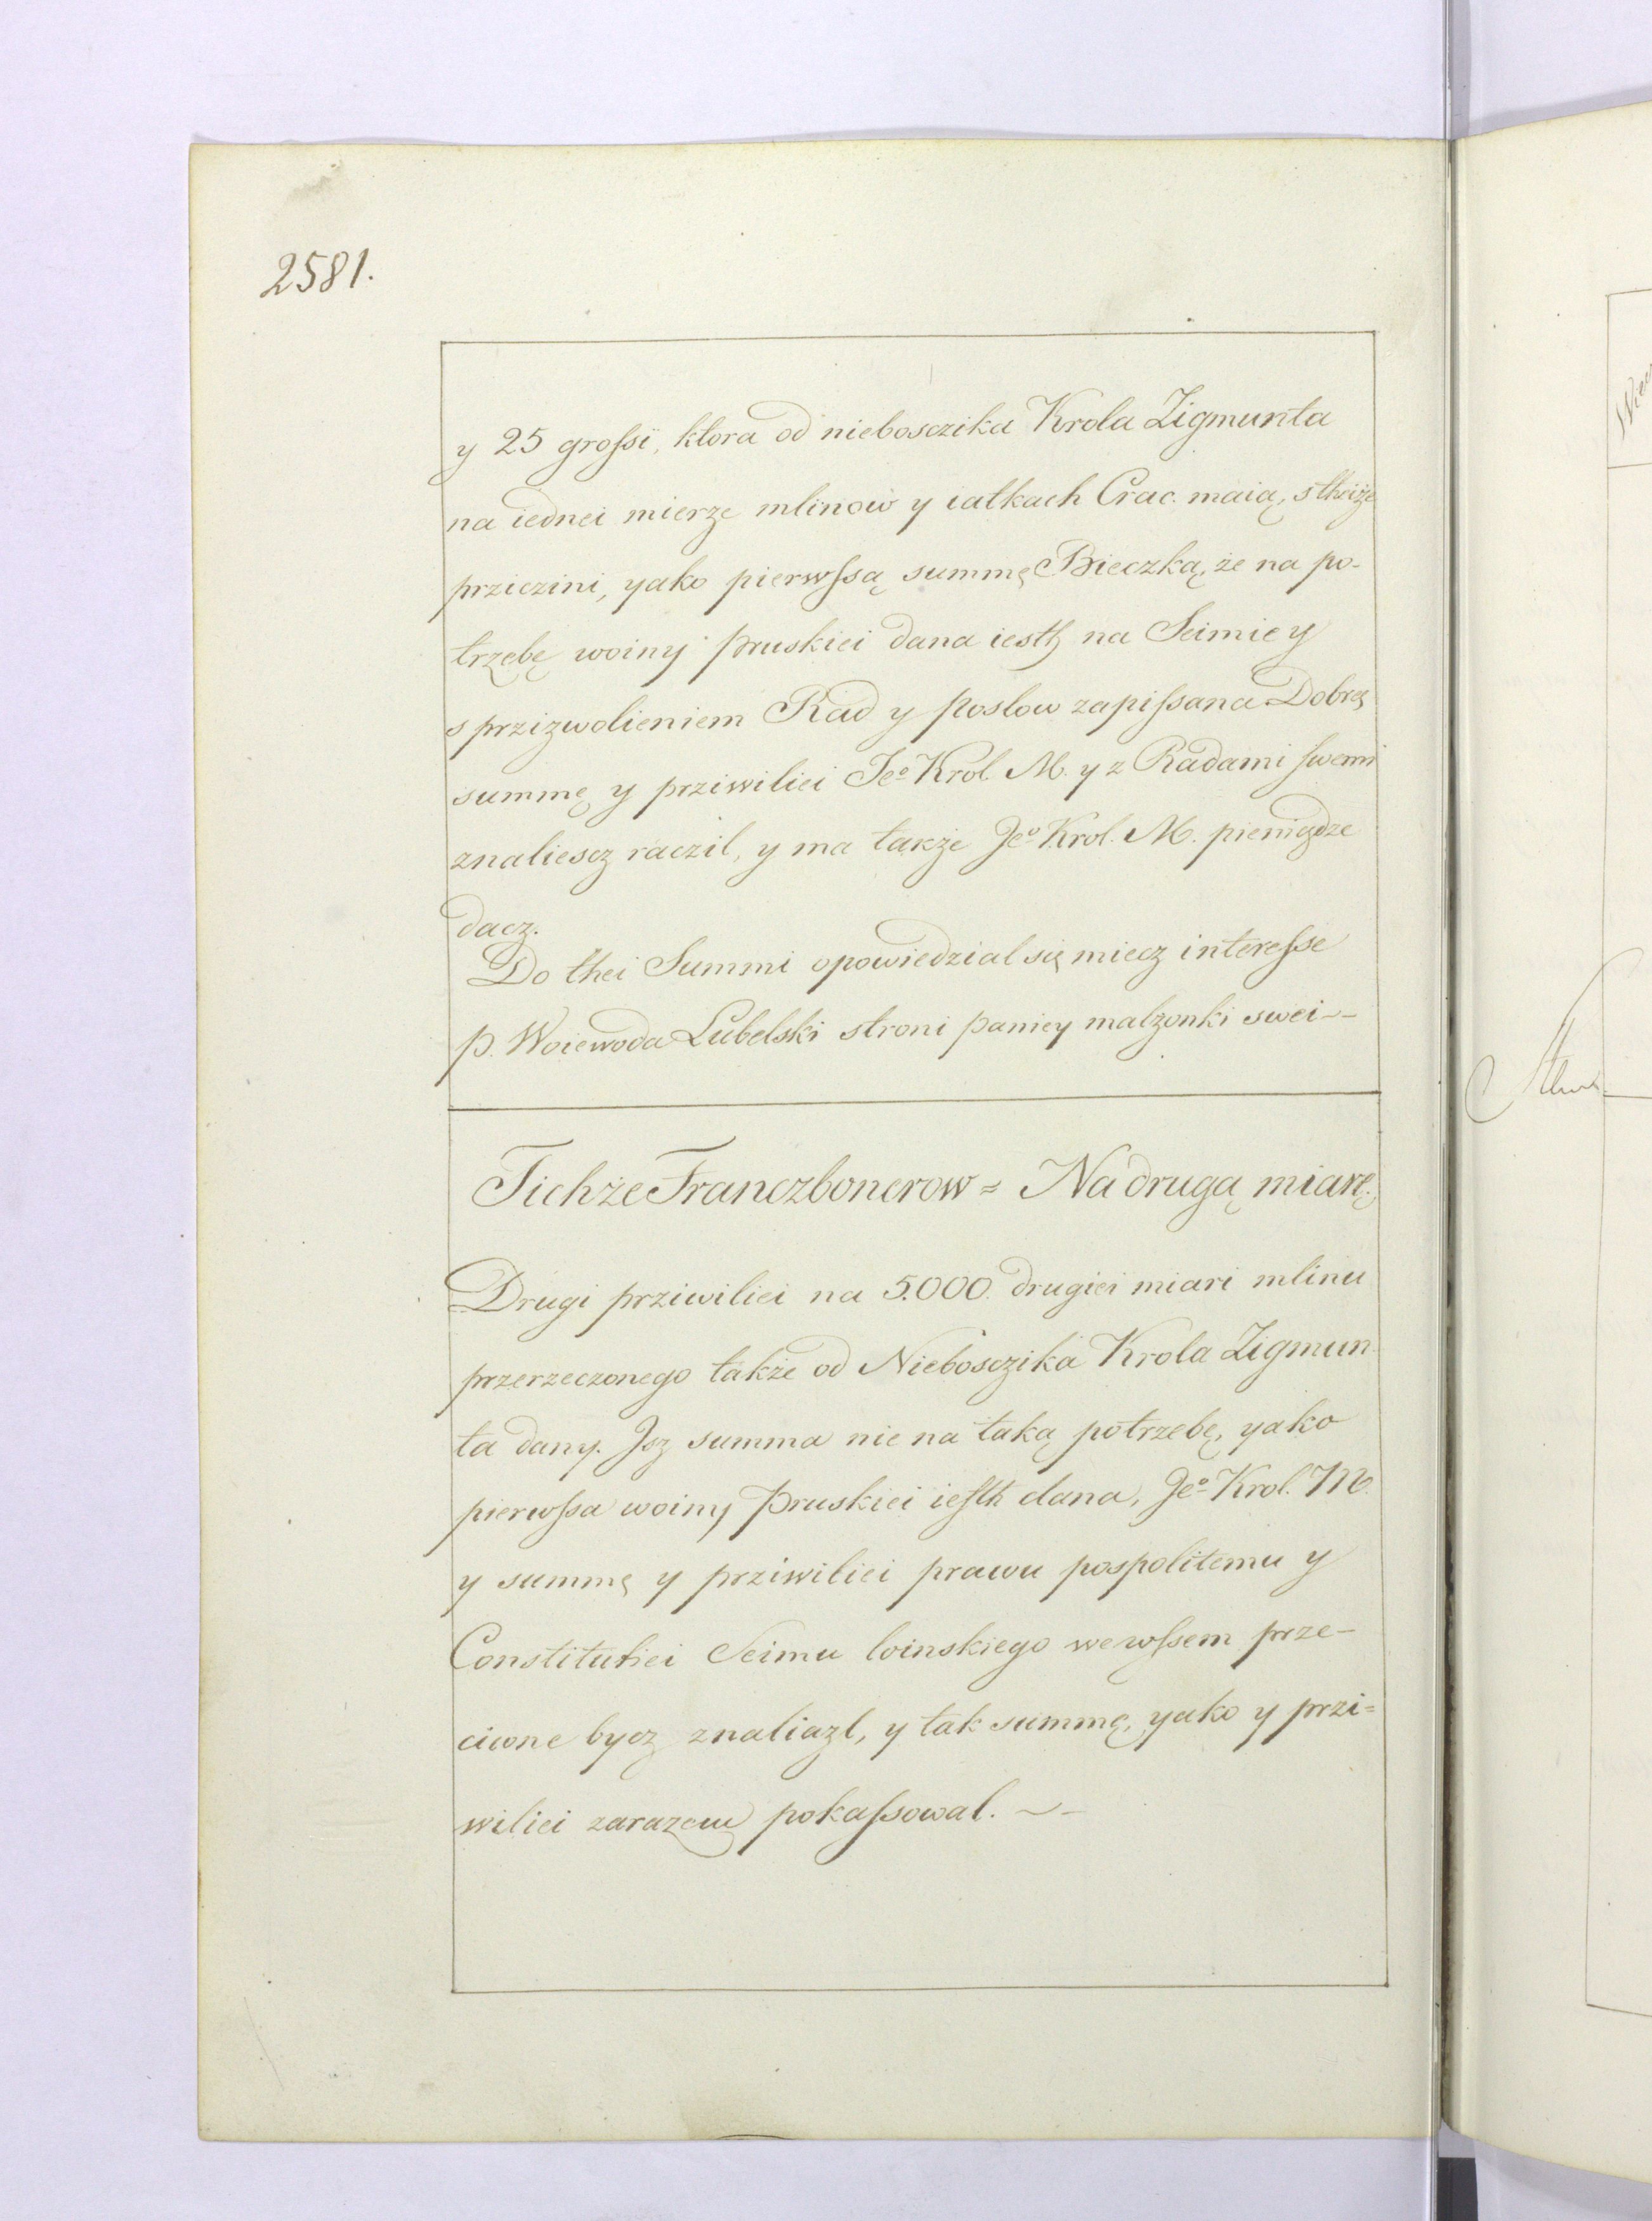 2581.
y 25 grossi, ktora od nieboszika Krola Zigmunta
na iednei mierze mlinow y iatkach Crac. maią, s theiże
prziczini, yako pierwssą summę Bieczką, że na po-
trzębę woiny pruskiei dana iesth na Seimie y
s przizwolieniem Rad y posłow zapissana Dobrą
summę y prziwiliei Jeo Krol. M. y z Radami swemi
znaliescz raczil, y ma także Jeo Krol. M. pieniądze
dacz.
Do thei Summi opowiedzial się miecz interesse
p. Woiewoda Lubelski stroni paniey malzonki swei --
Tichże Franczbonerow = Na drugą miarę.
Drugi prziwiliei na 5.000. drugiei miari mlinu
przerzeczonego także od Nieboszika Krola Zigmun
ta dany. Jsz summa nie na taką potrzebę, yako
pierwssa woiny Pruskiei iesth dana, Jeo Krol. M.
y summę y prziwiliei prawu pospolitemu y
Constitutiei Seimu loinskiego wewssem prze-
ciwne bycz znaliazl, y tak summę, yako y przi=
wiliei zarazem pokassowal. --